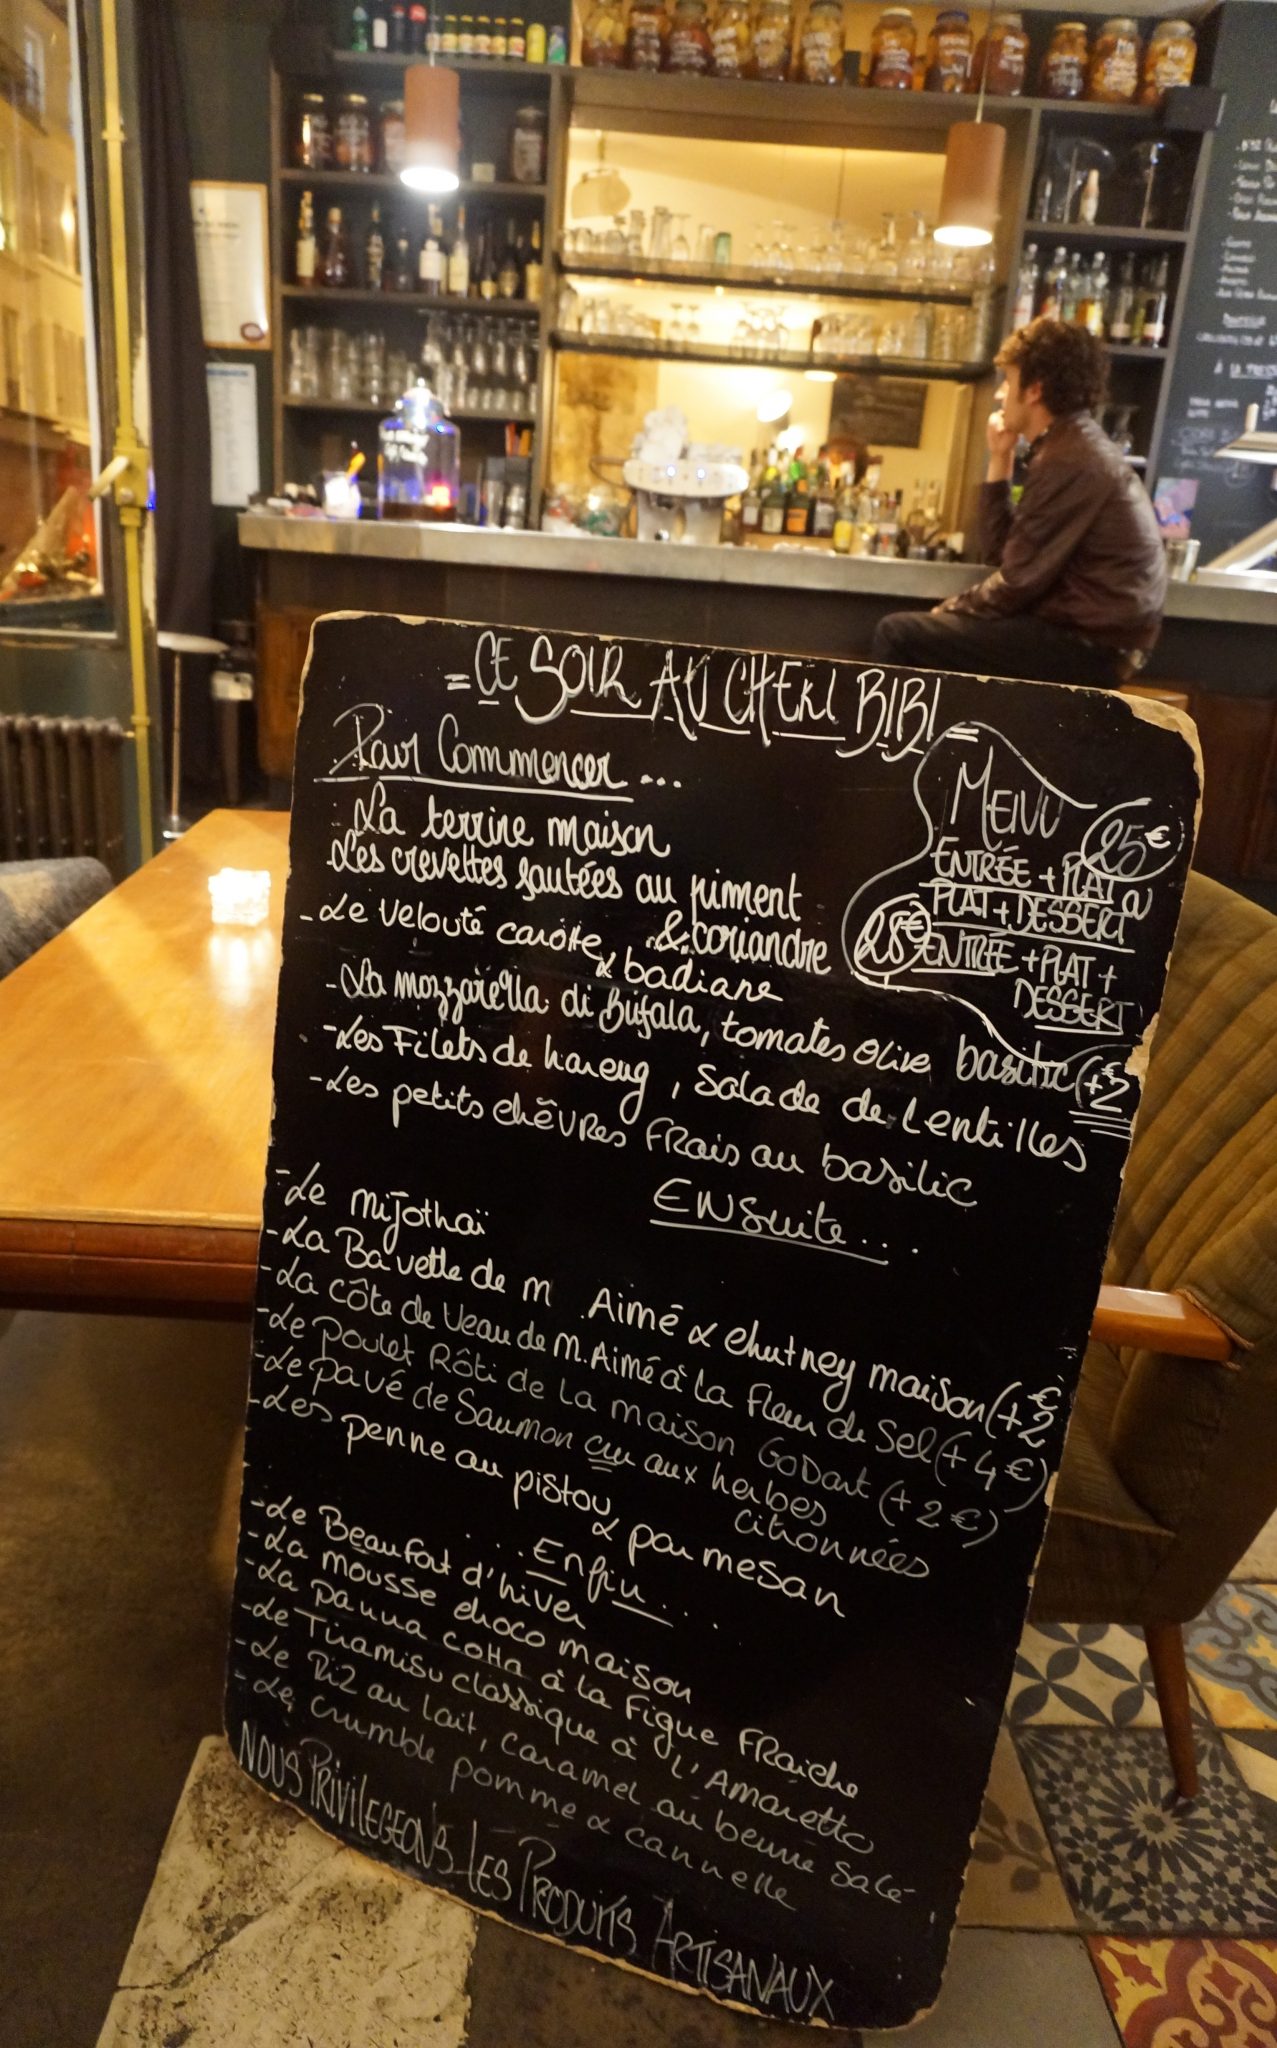 = CE SOIR AU CHERI BIBI =
Pour Commencer...
- La terrine maison
- Les crevettes sautées au piment
& coriandre
- Le velouté carotte
& badiane
- La mozzarella di Bufala, tomates olive basilic (+2€
- Les Filets de hareng, Salade de Lentilles
- Les petits chèvres frais au basilic
MENU
25€
ENTRÉE + PLAT
PLAT + DESSERT
28€ ENTRÉE + PLAT +
DESSERT
ENSuite...
- Le mijothaï
- La Bavette de M. Aimé & chutney maison (+2€
- La côte de Veau de M. Aimé à la fleur de Sel (+4€)
- Le poulet Rôti de la maison GoDart (+2€)
- Le pavé de Saumon cru aux herbes
citronnées
- Les penne au pistou & parmesan
...Enfin...
- Le Beaufort d'hiver
- La mousse choco maison
- La panna cotta à la Figue FRaiche
- Le Tiramisu classique à L'Amaretto
- Le Riz au lait, caramel au beurre salé
- Le crumble pomme & cannelle
NOUS PRIVILEGEONS LES PRODUITS ARTISANAUX